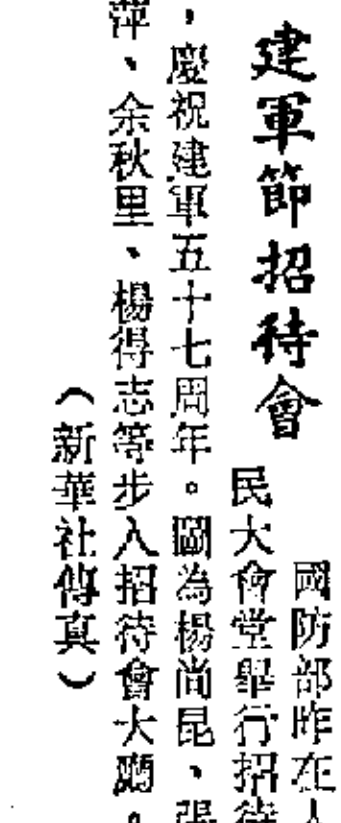 建軍節招待會
國防部昨在人
民大會堂舉行招待
，慶祝建軍五十七周年。圖為楊尚昆、張
萍、余秋里、楊得志等步入招待會大廳。
（新華社傳真）